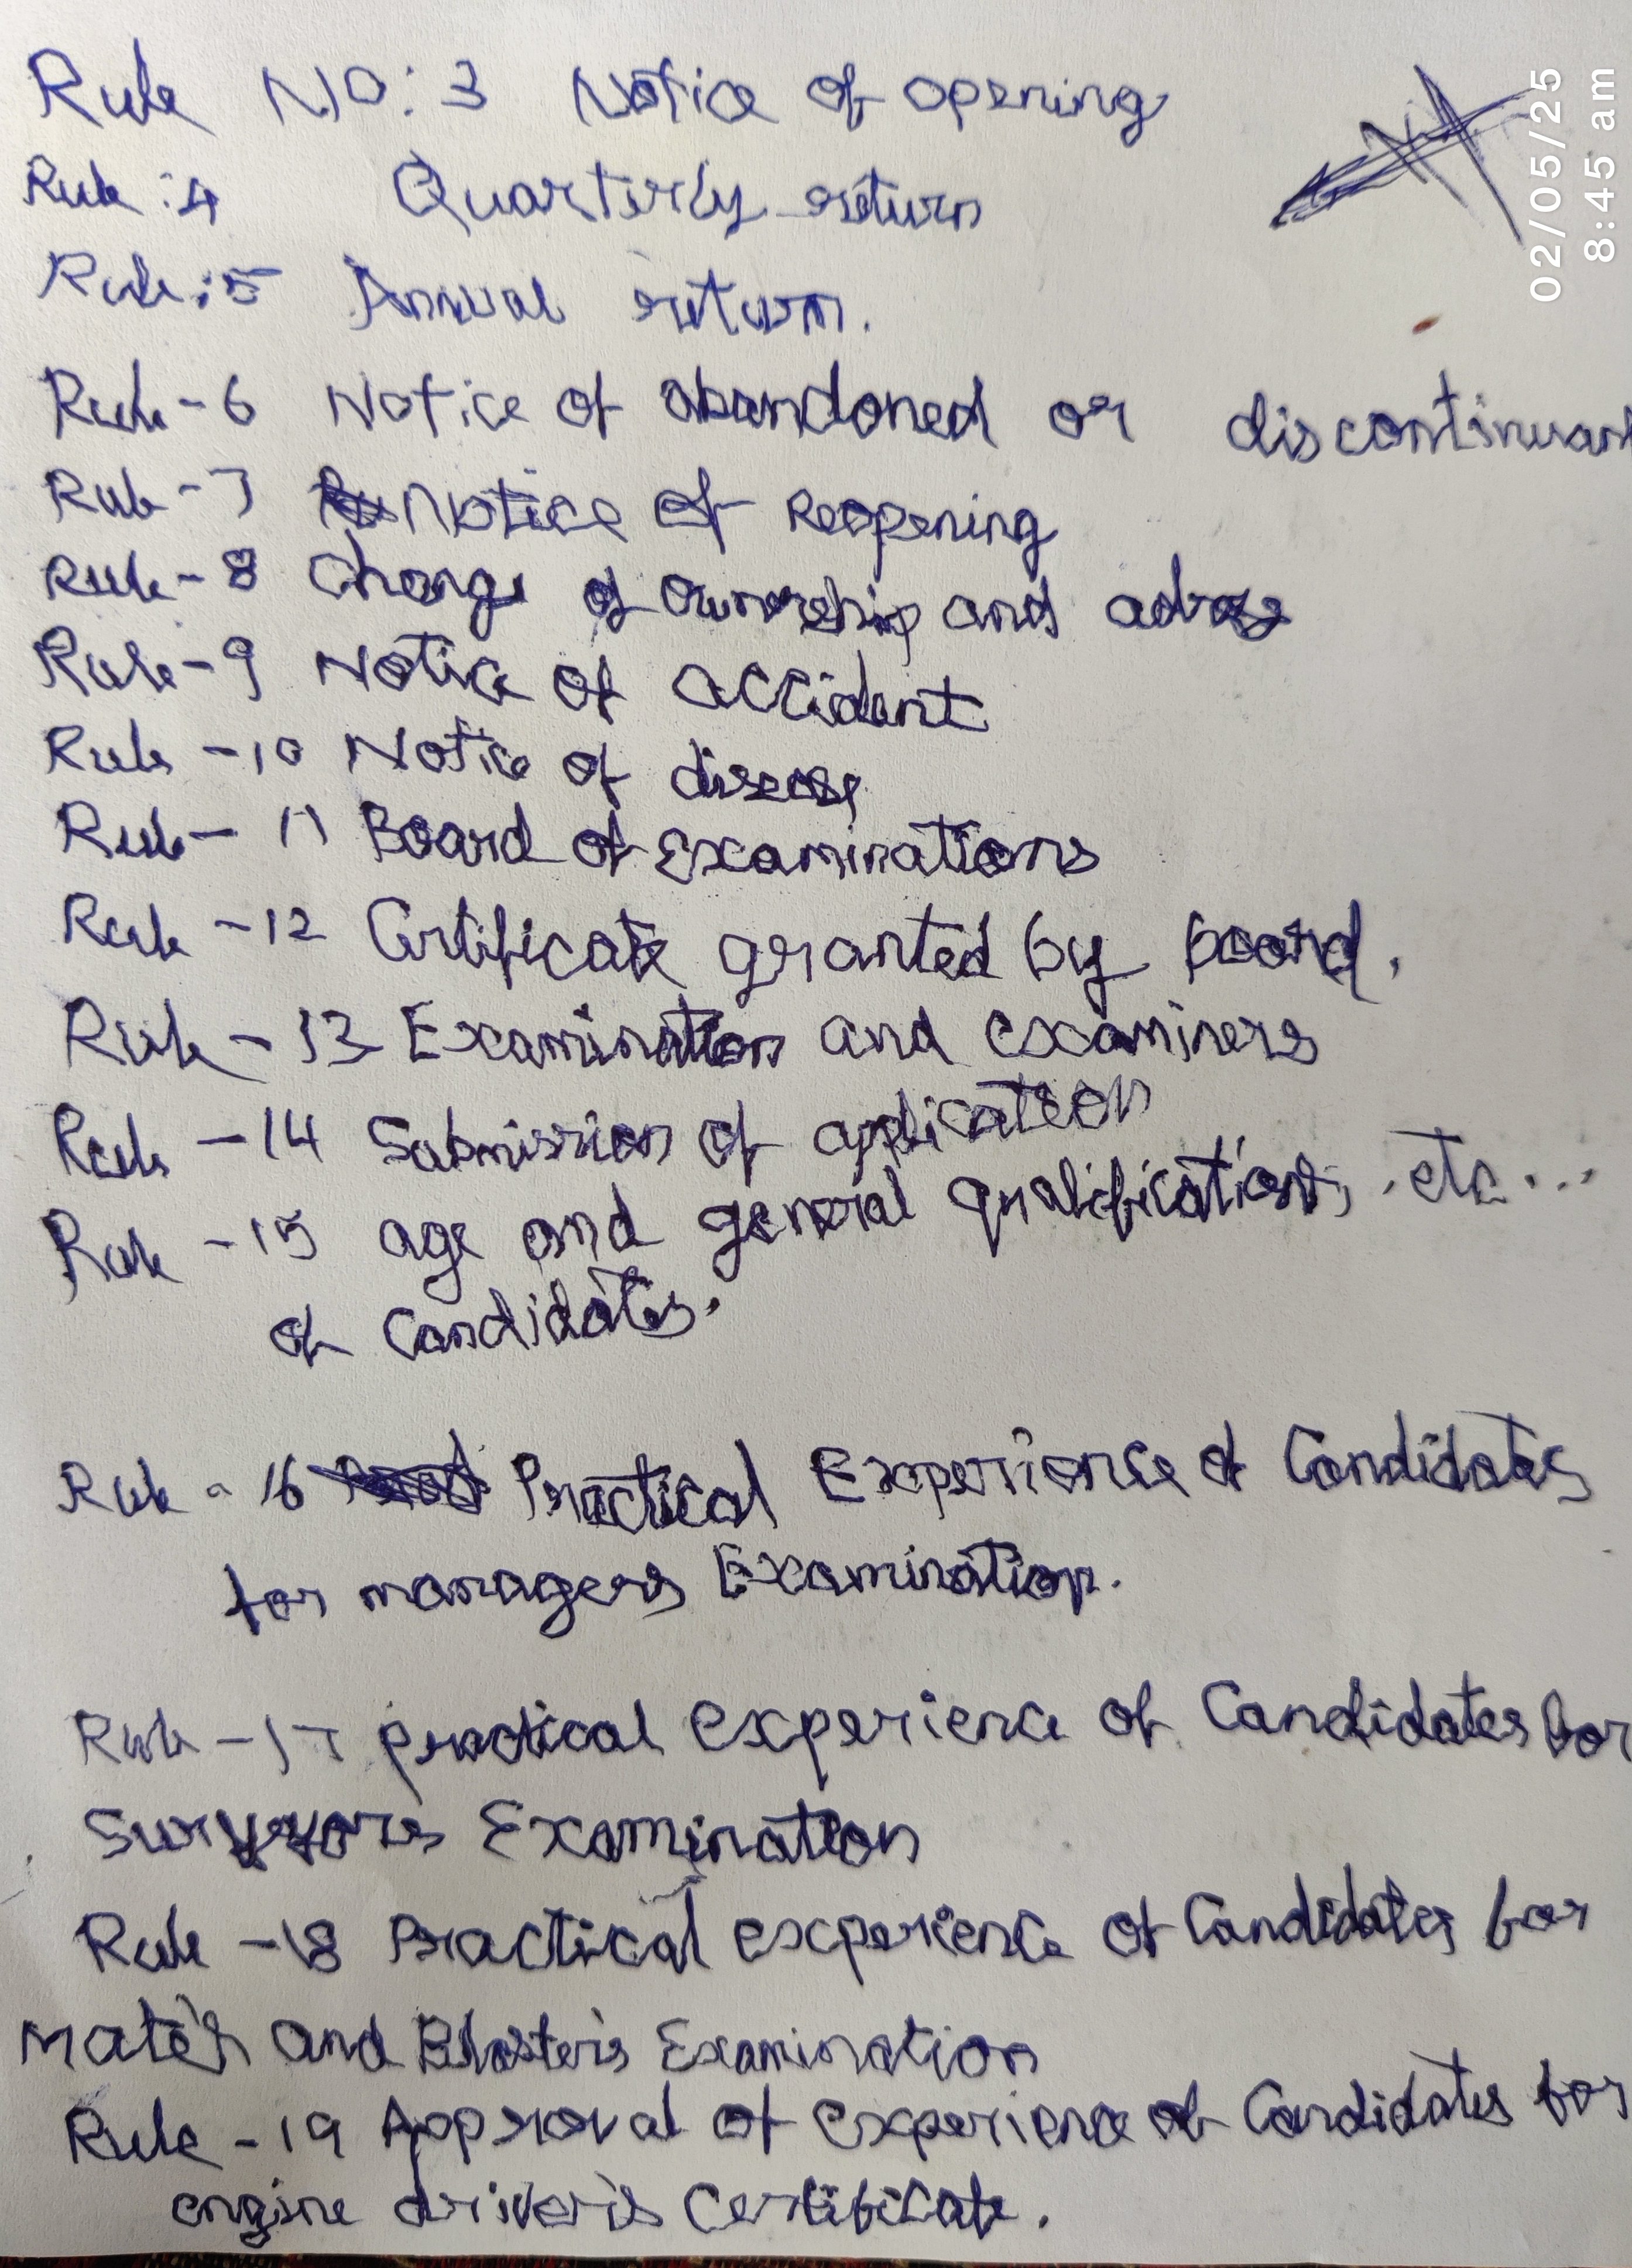 Rule NO: 3 Notice of opening
Rule :4 Quarterly return
Rule :5 Annual return.
Rule - 6 Notice of abandoned or discontinuan
Rule - 7 Notice of Reopening
Rule - 8 Change of ownership and
Rule - 9 Notice of accident
Rule - 10 Notice of disease
Rule - 11 Board of Examinations
Rule - 12 Certificate granted by board.
Rule - 13 Examination and examiners
Rule - 14 Submission of application
Rule - 15 age and general qualifications, etc...
of Candidates.
Rule - 16 Practical Experience of Candidates
for managers Examination.
Rule - 17 practical experience of Candidates for
Surveyors Examination
Rule - 18 Practical experience of Candidates for
Mate's and Blaster's Examination
Rule - 19 Approval of experience of Candidates for
engine driver's Certificate.
02/05/25
8:45 am